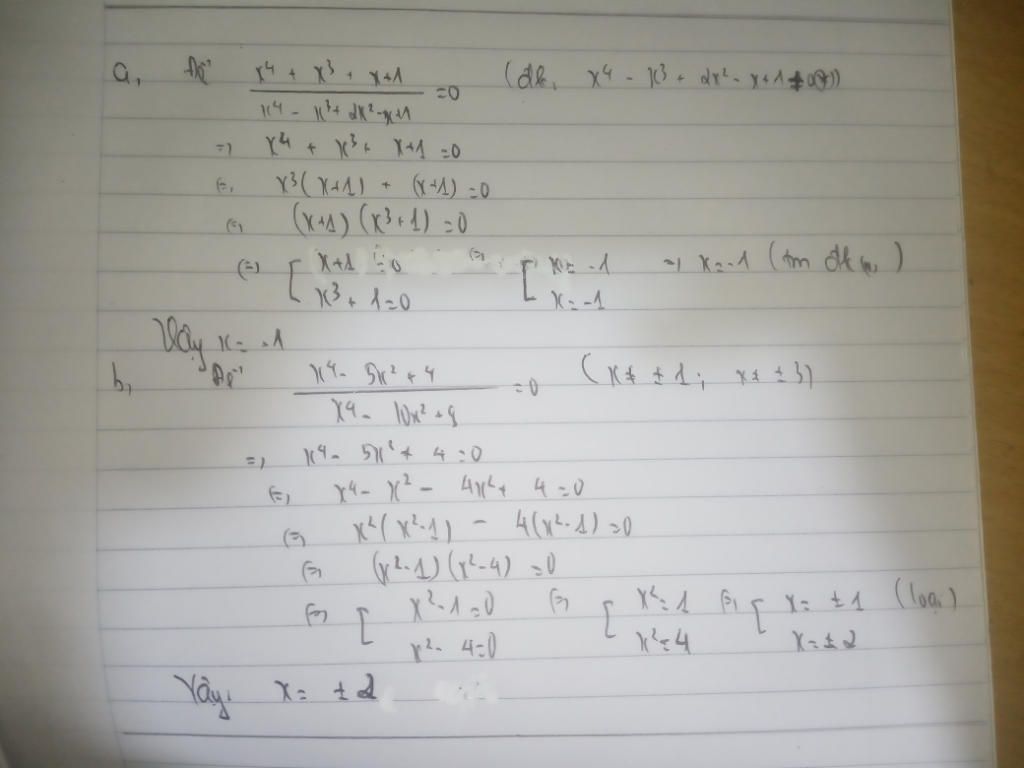 a, Để x⁴ + x³ + x+1 / x⁴ - x³ + 2x² - x+1 = 0 (đk, x⁴ - x³ + 2x² - x+1 ≠ 0)
=> x⁴ + x³ + x+1 = 0
(=) x³(x+1) + (x+1) = 0
(=) (x+1)(x³+1) = 0
(=) [ x+1 = 0 (=) [ x = -1 => x = -1 (tm đk)
x³ + 1 = 0 x = -1
Vậy x = -1
b, Để x⁴ - 5x² + 4 / x⁴ - 10x² + 9 = 0 (x ≠ ±1; x ≠ ±3)
=> x⁴ - 5x² + 4 = 0
(=) x⁴ - x² - 4x² + 4 = 0
(=) x²(x²-1) - 4(x²-1) = 0
(=) (x²-1)(x²-4) = 0
(=) [ x² - 1 = 0 (=) [ x² = 1 (=) [ x = ±1 (loại)
x² - 4 = 0 x² = 4 x = ±2
Vậy x = ±2